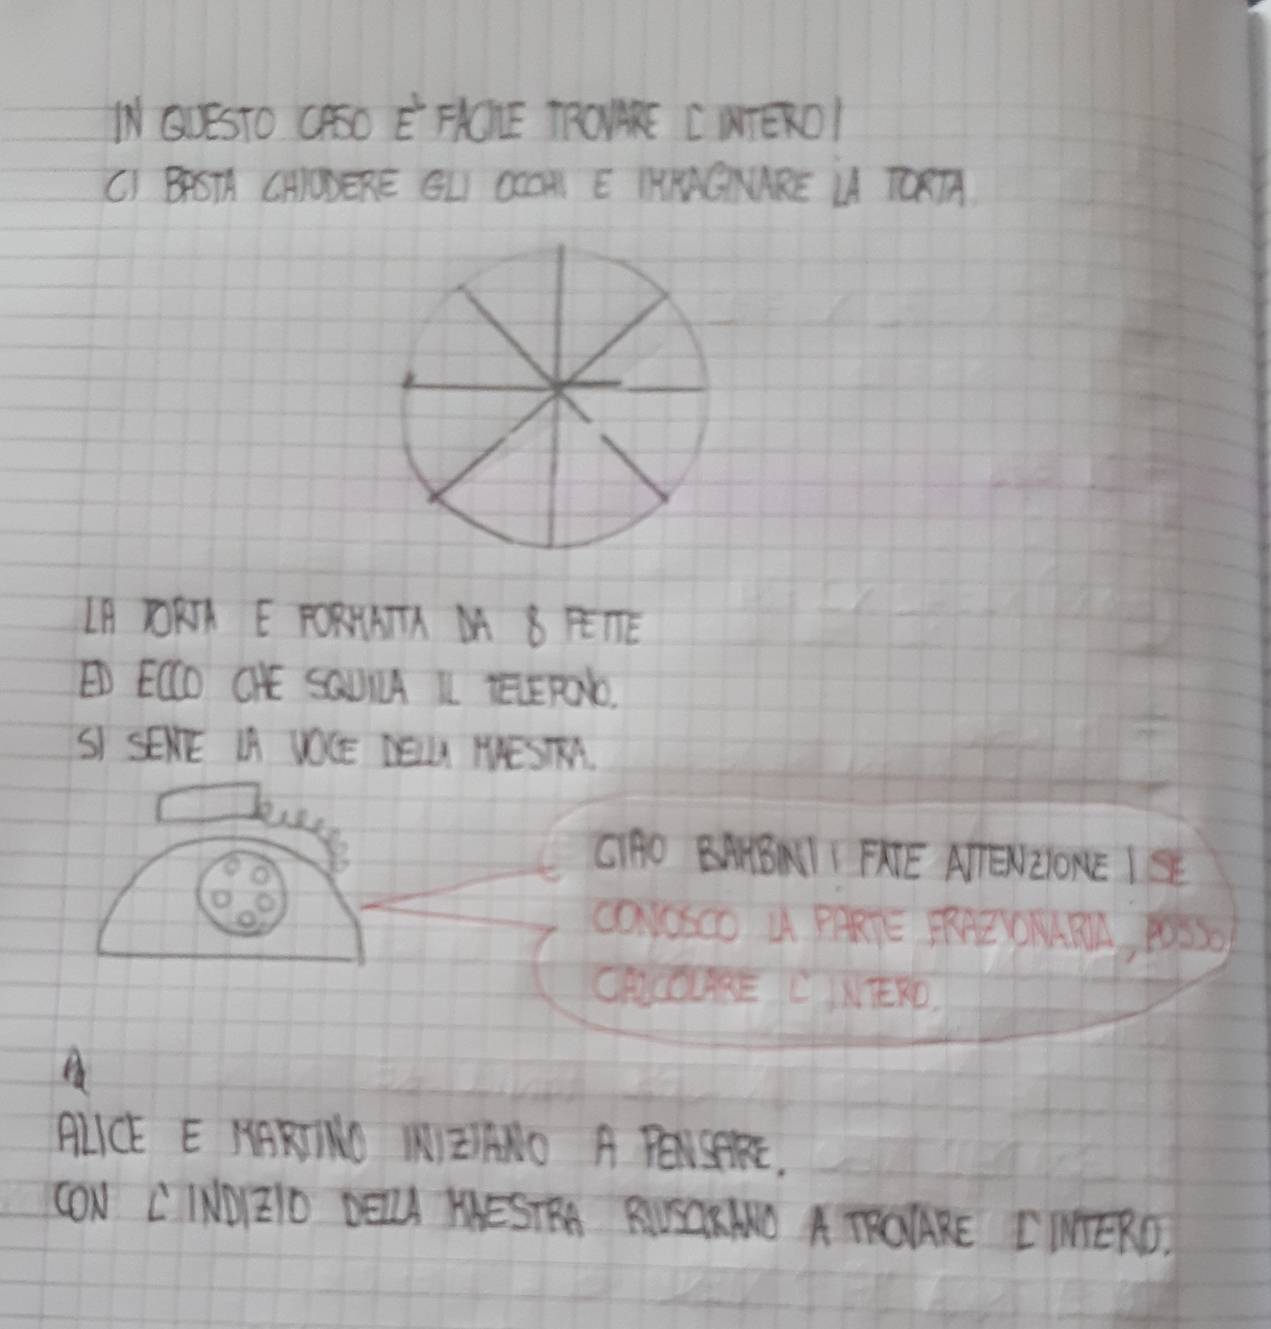 IN QUESTO CASO È FACILE TROVARE L'INTERO!
CI BASTA CHIUDERE GLI OCCHI E IMMAGINARE LA TORTA.
LA TORTA E FORMATTA DA 8 FETTE
ED ECCO CHE SQUILLA IL TELEFONO.
SI SENTE LA VOCE DELLA MAESTRA.
CIAO BAMBINI! FATE ATTENZIONE! SE
CONOSCO LA PARTE FRAZIONARIA, POSSO
CALCOLARE L'INTERO.
A
ALICE E MARTINO INIZIANO A PENSARE.
CON L'INDIZIO DELLA MAESTRA RIUSCIRANO A TROVARE L'INTERO.